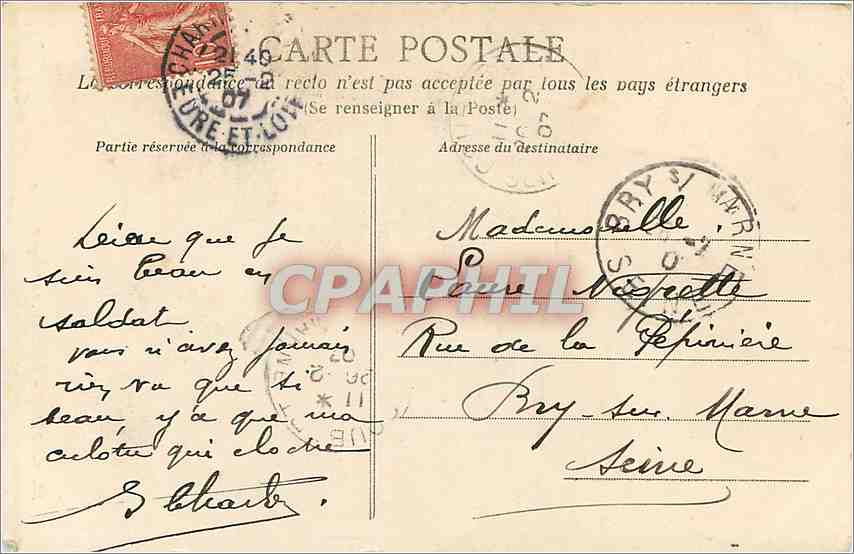 CARTE POSTALE
La correspondance au recto n'est pas acceptée par tous les pays étrangers
(Se renseigner à la Poste)
Partie réservée à la correspondance
Adresse du destinataire
que je
suis beau en
soldat
vous n'avez jamais
rien vu que si
beau, y a que ma
culotte qui cloche
Mademoiselle
Laure
Rue de la Pépinière
Bry-sur-Marne
Seine
CHAR
12 40
25 -2
07
EURE-ET-LOIR
BRY S/ MARNE
CPAPHIL